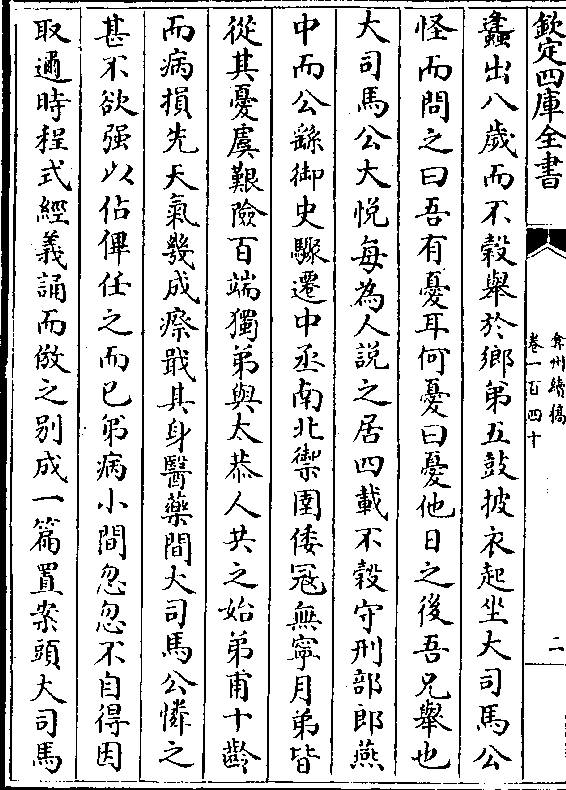 欽定四庫全書
弇州續稿
卷一百四十
二
蠭出八歲而不穀舉於鄉弟五鼓披衣起坐大司馬公
怪而問之曰吾有憂耳何憂曰憂他日之後吾兄舉也
大司馬公大悅每為人說之居四載不穀守刑部郎燕
中而公繇御史驟遷中丞南北禦圉倭冦無寧月弟皆
從其憂虞艱險百端獨弟與太恭人共之始弟甫十齡
而病損先天氣幾成瘵戢其身醫藥間大司馬公憐之
甚不欲强以佔俾任之而已弟病小間忽忽不自得因
取邇時程式經義誦而倣之别成一篇置案頭大司馬